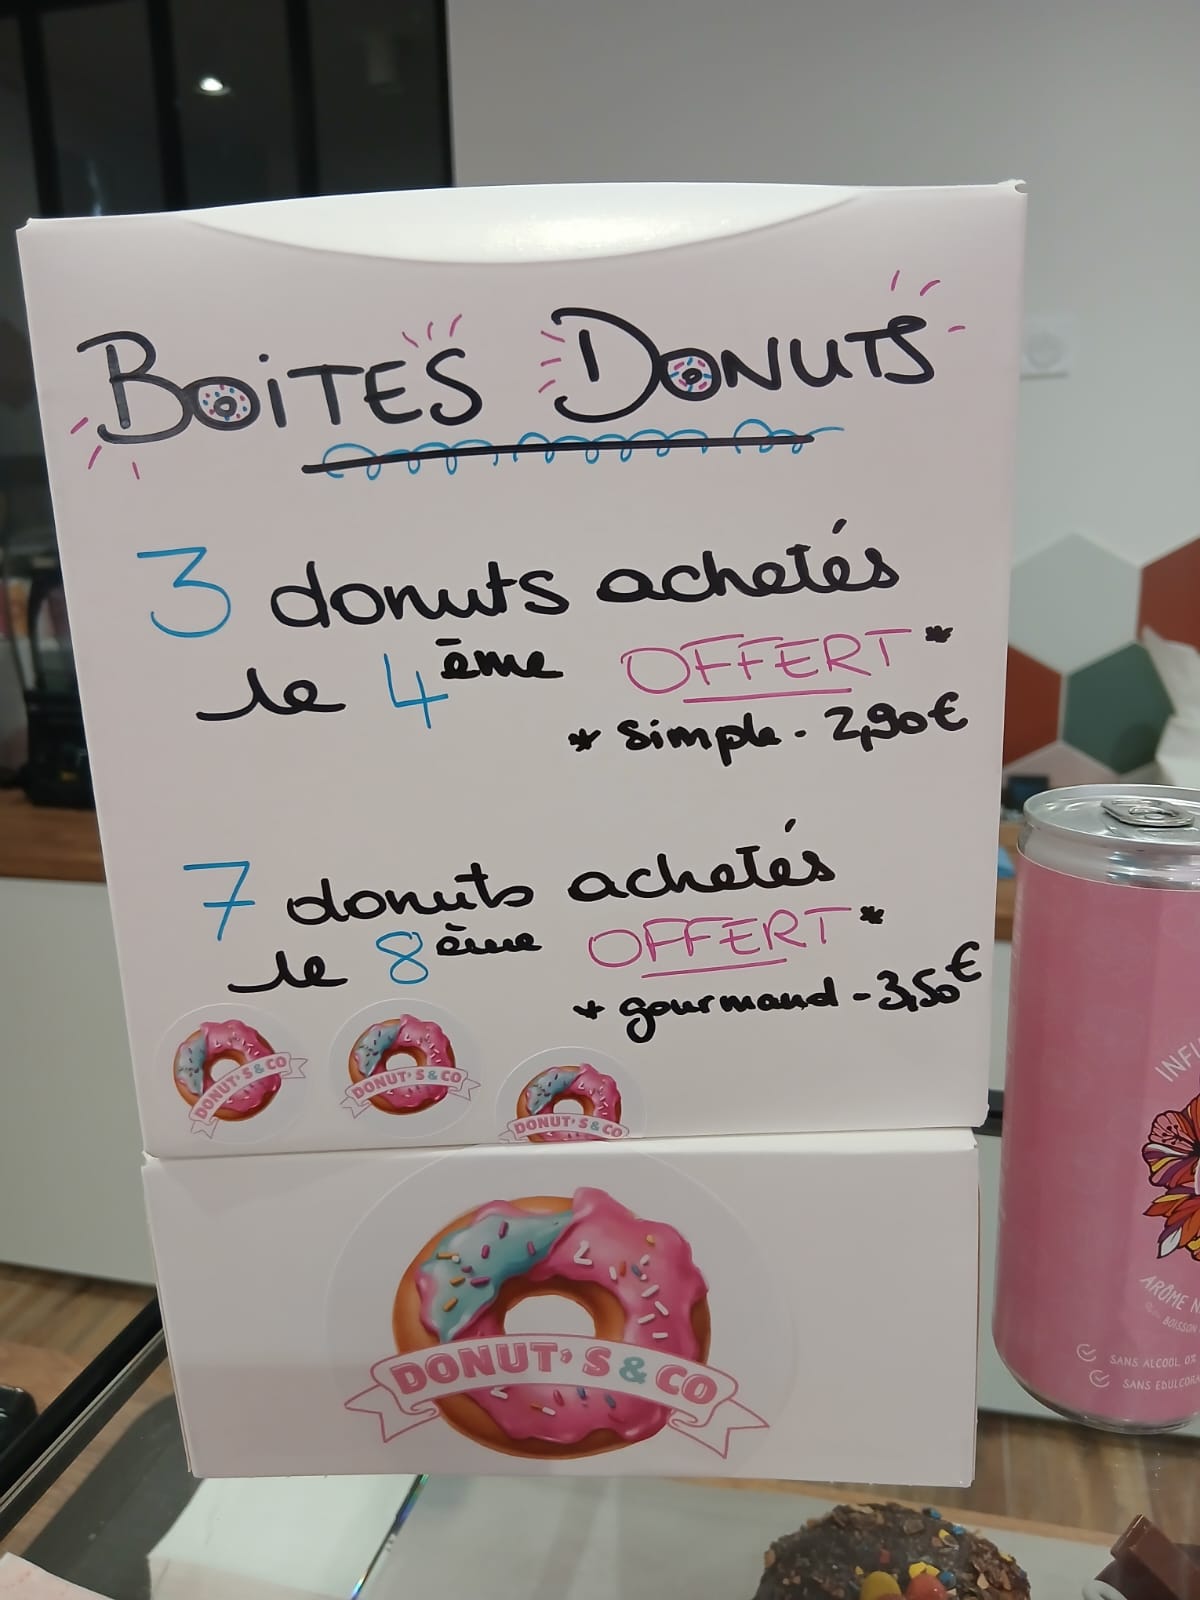 BOiTES DONUTS
3 donuts achetés
le 4ème OFFERT*
* simple - 2,90€
7 donuts achetés
le 8ème OFFERT*
* gourmand - 3,50€
DONUT'S & CO
DONUT'S & CO
DONUT'S & CO
DONUT'S & CO
ARÔME N
BOISSON
SANS ALCOOL 0%